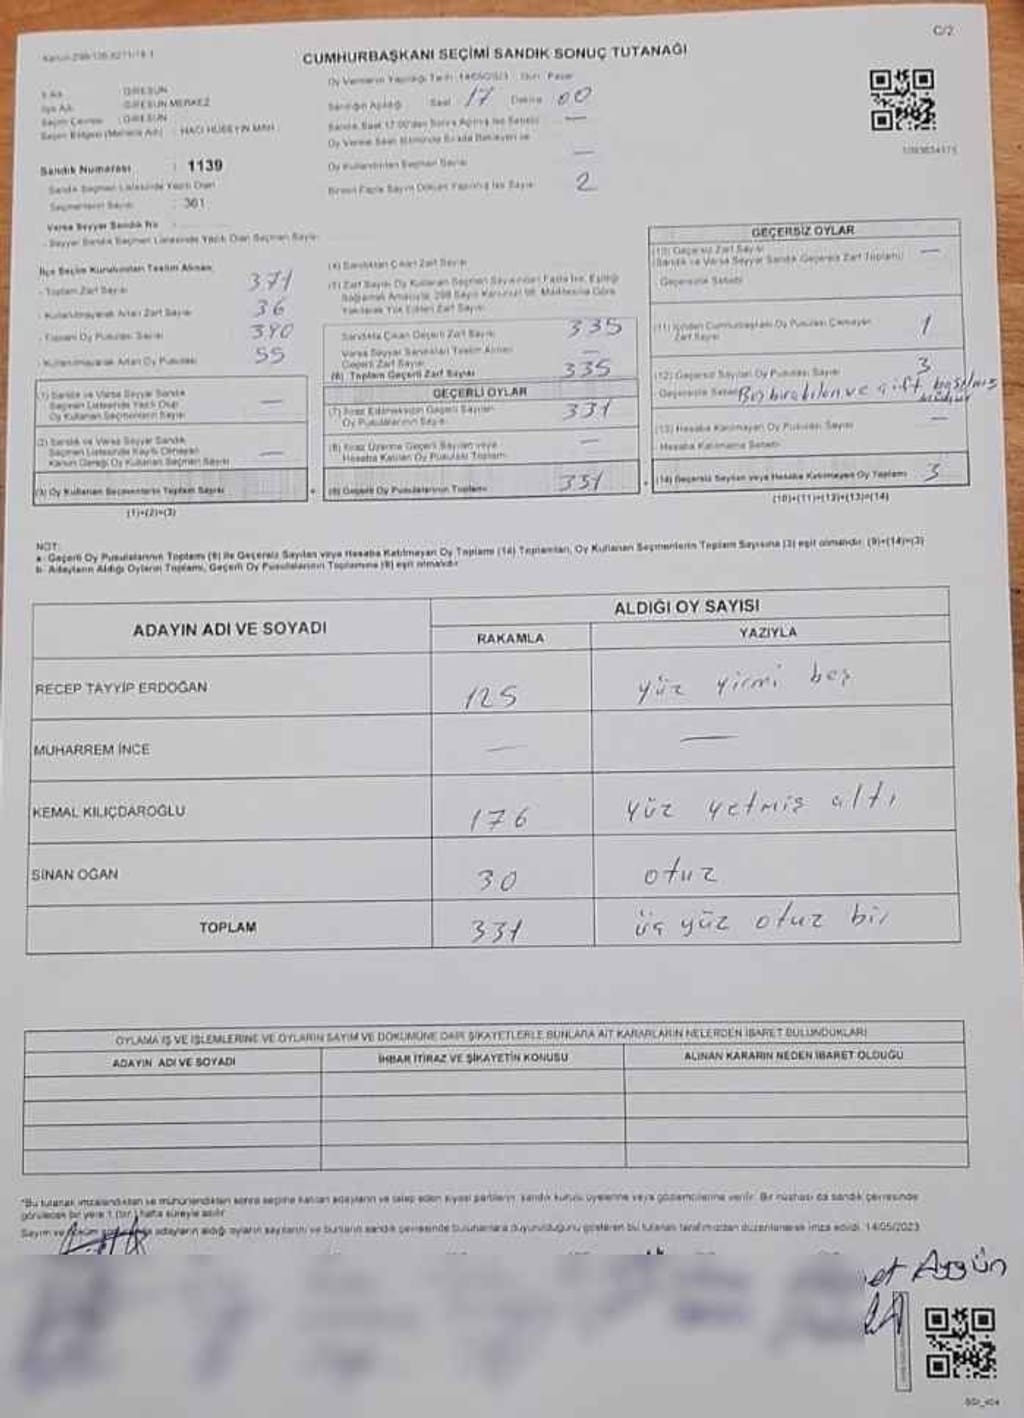 C/2
CUMHURBAŞKANI SEÇİMİ SANDIK SONUÇ TUTANAĞI
Oy Vermenin Yapıldığı Tarih: 14/05/2023 Gün: Pazar
İl Adı : GİRESUN
Sandığın Açıldığı Saat 17 Dakika 00
İlçe Adı : GİRESUN MERKEZ
Seçim Çevresi : GİRESUN
Seçim Bölgesi (Mahalle Adı) : HACI HÜSEYİN MAH.
Sandık Saat 17:00'den Sonra Açılmış İse Sebebi —
Oy Verme Saati Bitiminde Sırada Bekleyen ve
Oy Kullandırılan Seçmen Sayısı —
Birden Fazla Sayım Döküm Yapılmış İse Sayısı 2
Sandık Numarası : 1139
Sandık Seçmen Listesinde Yazılı Olan
Seçmenlerin Sayısı : 361
Varsa Seyyar Sandık No :
- Seyyar Sandık Seçmen Listesinde Yazılı Olan Seçmen Sayısı:
İlçe Seçim Kurulundan Teslim Alınan;
- Toplam Zarf Sayısı 371
- Kullanılmayarak Artan Zarf Sayısı 36
- Toplam Oy Pusulası Sayısı 390
- Kullanılmayarak Artan Oy Pusulası 55
(1) Sandık ve Varsa Seyyar Sandık
Seçmen Listesinde Yazılı Olup
Oy Kullanan Seçmenlerin Sayısı —
(2) Sandık ve Varsa Seyyar Sandık
Seçmen Listesinde Kayıtlı Olmayan
Kanun Gereği Oy Kullanan Seçmen Sayısı —
(3) Oy Kullanan Seçmenlerin Toplam Sayısı
(1)+(2)=(3)
(4) Sandıktan Çıkan Zarf Sayısı
(5) Zarf Sayısı Oy Kullanan Seçmen Sayısından Fazla İse, Eşitliği
Sağlamak Amacıyla, 298 Sayılı Kanunun 98. Maddesine Göre
Yakılarak Yok Edilen Zarf Sayısı
Sandıkta Çıkan Geçerli Zarf Sayısı 335
Varsa Seyyar Sandıktan Teslim Alınan
Geçerli Zarf Sayısı —
(6) Toplam Geçerli Zarf Sayısı 335
GEÇERLİ OYLAR
(7) İtiraz Edilmeksizin Geçerli Sayılan
Oy Pusulalarının Sayısı 331
(8) İtiraz Üzerine Geçerli Sayılan veya
Hesaba Katılan Oy Pusulası Toplamı —
(9) Geçerli Oy Pusulalarının Toplamı 331
GEÇERSİZ OYLAR
(10) Geçersiz Zarf Sayısı
(Sandık ve Varsa Seyyar Sandık Geçersiz Zarf Toplamı) —
Geçersizlik Sebebi
(11) İçinden Cumhurbaşkanı Oy Pusulası Çıkmayan
Zarf Sayısı 1
(12) Geçersiz Sayılan Oy Pusulası Sayısı 3
Geçersizlik Sebebi Boş bırakılan ve çift basılmış
mühür
(13) Hesaba Katılmayan Oy Pusulası Sayısı —
- Hesaba Katılmama Sebebi
(14) Geçersiz Sayılan veya Hesaba Katılmayan Oy Toplamı 3
(10)+(11)+(12)+(13)=(14)
NOT:
a- Geçerli Oy Pusulalarının Toplamı (9) ile Geçersiz Sayılan veya Hesaba Katılmayan Oy Toplamı (14) Toplamları, Oy Kullanan Seçmenlerin Toplam Sayısına (3) eşit olmalıdır. (9)+(14)=(3)
b- Adayların Aldığı Oyların Toplamı, Geçerli Oy Pusulalarının Toplamına (9) eşit olmalıdır.
ADAYIN ADI VE SOYADI ALDIĞI OY SAYISI
RAKAMLA YAZIYLA
RECEP TAYYİP ERDOĞAN 125 yüz yirmi beş
MUHARREM İNCE — —
KEMAL KILIÇDAROĞLU 176 yüz yetmiş altı
SİNAN OĞAN 30 otuz
TOPLAM 331 üç yüz otuz bir
OYLAMA İŞ VE İŞLEMLERİNE VE OYLARIN SAYIM VE DÖKÜMÜNE DAİR ŞİKAYETLERLE BUNLARA AİT KARARLARIN NELERDEN İBARET BULUNDUKLARI
ADAYIN ADI VE SOYADI İHBAR İTİRAZ VE ŞİKAYETİN KONUSU ALINAN KARARIN NEDEN İBARET OLDUĞU
*Bu tutanak imzalandıktan ve mühürlendikten sonra seçime katılan adayların ve talep eden siyasi partilerin sandık kurulu üyelerine veya gözlemcilerine verilir. Bir nüshası da sandık çevresinde
görülecek bir yere 1 (bir) hafta süreyle asılır.
Sayım ve adayların aldığı oyların sayılarını ve bunların sandık çevresinde bulunanlara duyurulduğunu gösteren bu tutanak tarafımızdan düzenlenerek imza edildi. 14/05/2023
et Aygün